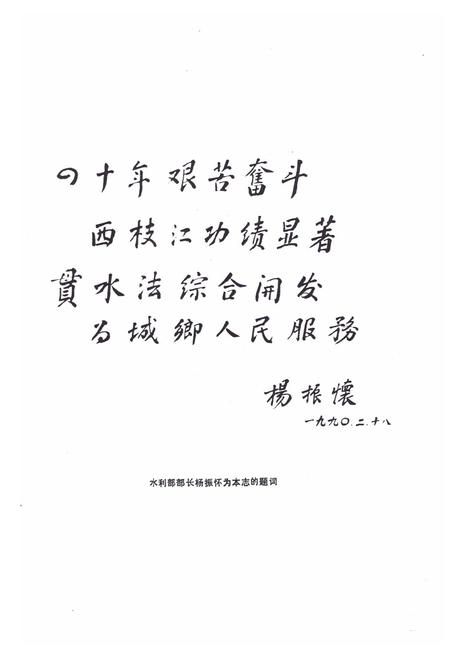 四十年艰苦奮斗
西枝江功绩显著
貫水法综合開发
为城鄉人民服務
楊振懷
一九九〇.二.十八
水利部部长杨振怀为本志的题词